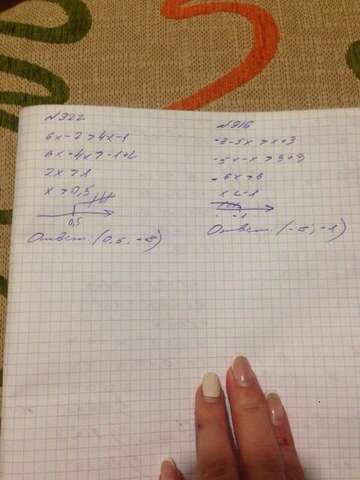 N922
6x-2>4x-1
6x-4x>-1+2
2x>1
x>0,5
0,5
Ответ: (0,5; +∞)
N916
-3-5x>x+3
-5x-x>3+3
-6x>6
x<-1
-1
Ответ: (-∞; -1)